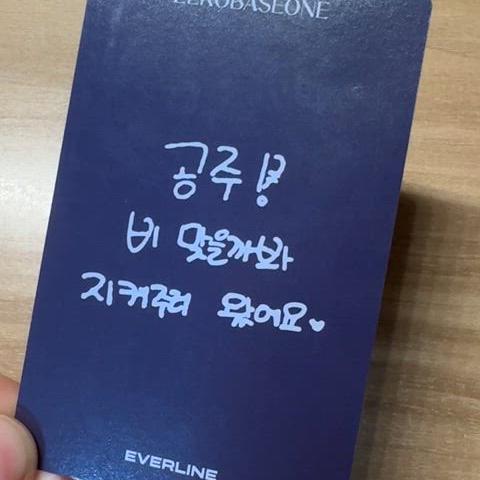 ZEROBASEONE
공주!
비 맞을까봐
지켜주러 왔어요♥
EVERLINE